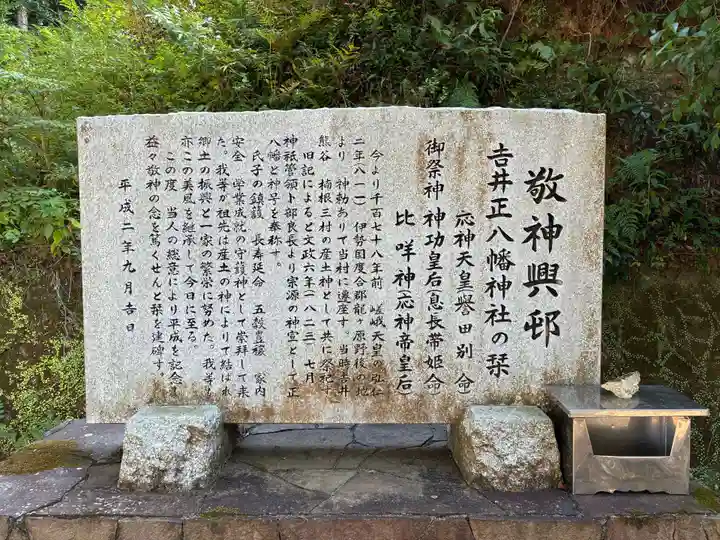 敬神興邨
𠮷井正八幡神社の栞
応神天皇(譽田別命)
御祭神 神功皇后(息長帯姫命)
比咩神(応神帝皇后)
今より千百七十八年前 嵯峨天皇の弘仁
二年(八一一) 伊勢国度合郡龍ヶ原野後の地
より 神勅ありて当村に遷座す。当時吉井
熊谷 楠根三村の産土神として共に祭祀す
旧記によると文政六年(一八二三)七月
神祇管領卜部良長より宗源の神宣として正
八幡と神号を奉称す。
氏子の鎮護 長寿延命 五穀豊穣 家内
安全 学業成就の守護神として崇拝して来
た。我等が祖先は産土の神によりて結ばれ
郷土の振興と一家の繁栄に努めた。我等
亦この美風を継承して今日に至る。
この度 当人の総意により平成を記念す
益々敬神の念を篤くせんと栞を建碑す
平成二年九月吉日